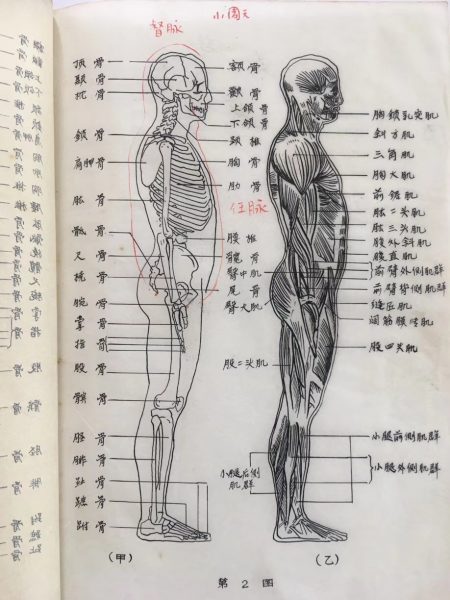 督脉
小周天
颞骨
枕骨
鎖骨
肩胛骨
肱骨
骶骨
尺骨
桡骨
腕骨
掌骨
指骨
股骨
髌骨
胫骨
腓骨
趾骨
蹠骨
跗骨
额骨
颧骨
上颌骨
下颌骨
颈椎
胸骨
肋骨
任脉
腰椎
髋骨
臀中肌
尾骨
臀大肌
股二头肌
小腿后侧
肌群
胸鎖乳突肌
斜方肌
三角肌
胸大肌
前锯肌
肱二头肌
肱三头肌
腹外斜肌
腹直肌
前臂外侧肌群
前臂背侧肌群
缝匠肌
阔筋膜张肌
股四头肌
小腿前侧肌群
小腿外侧肌群
(甲)
(乙)
第 2 图